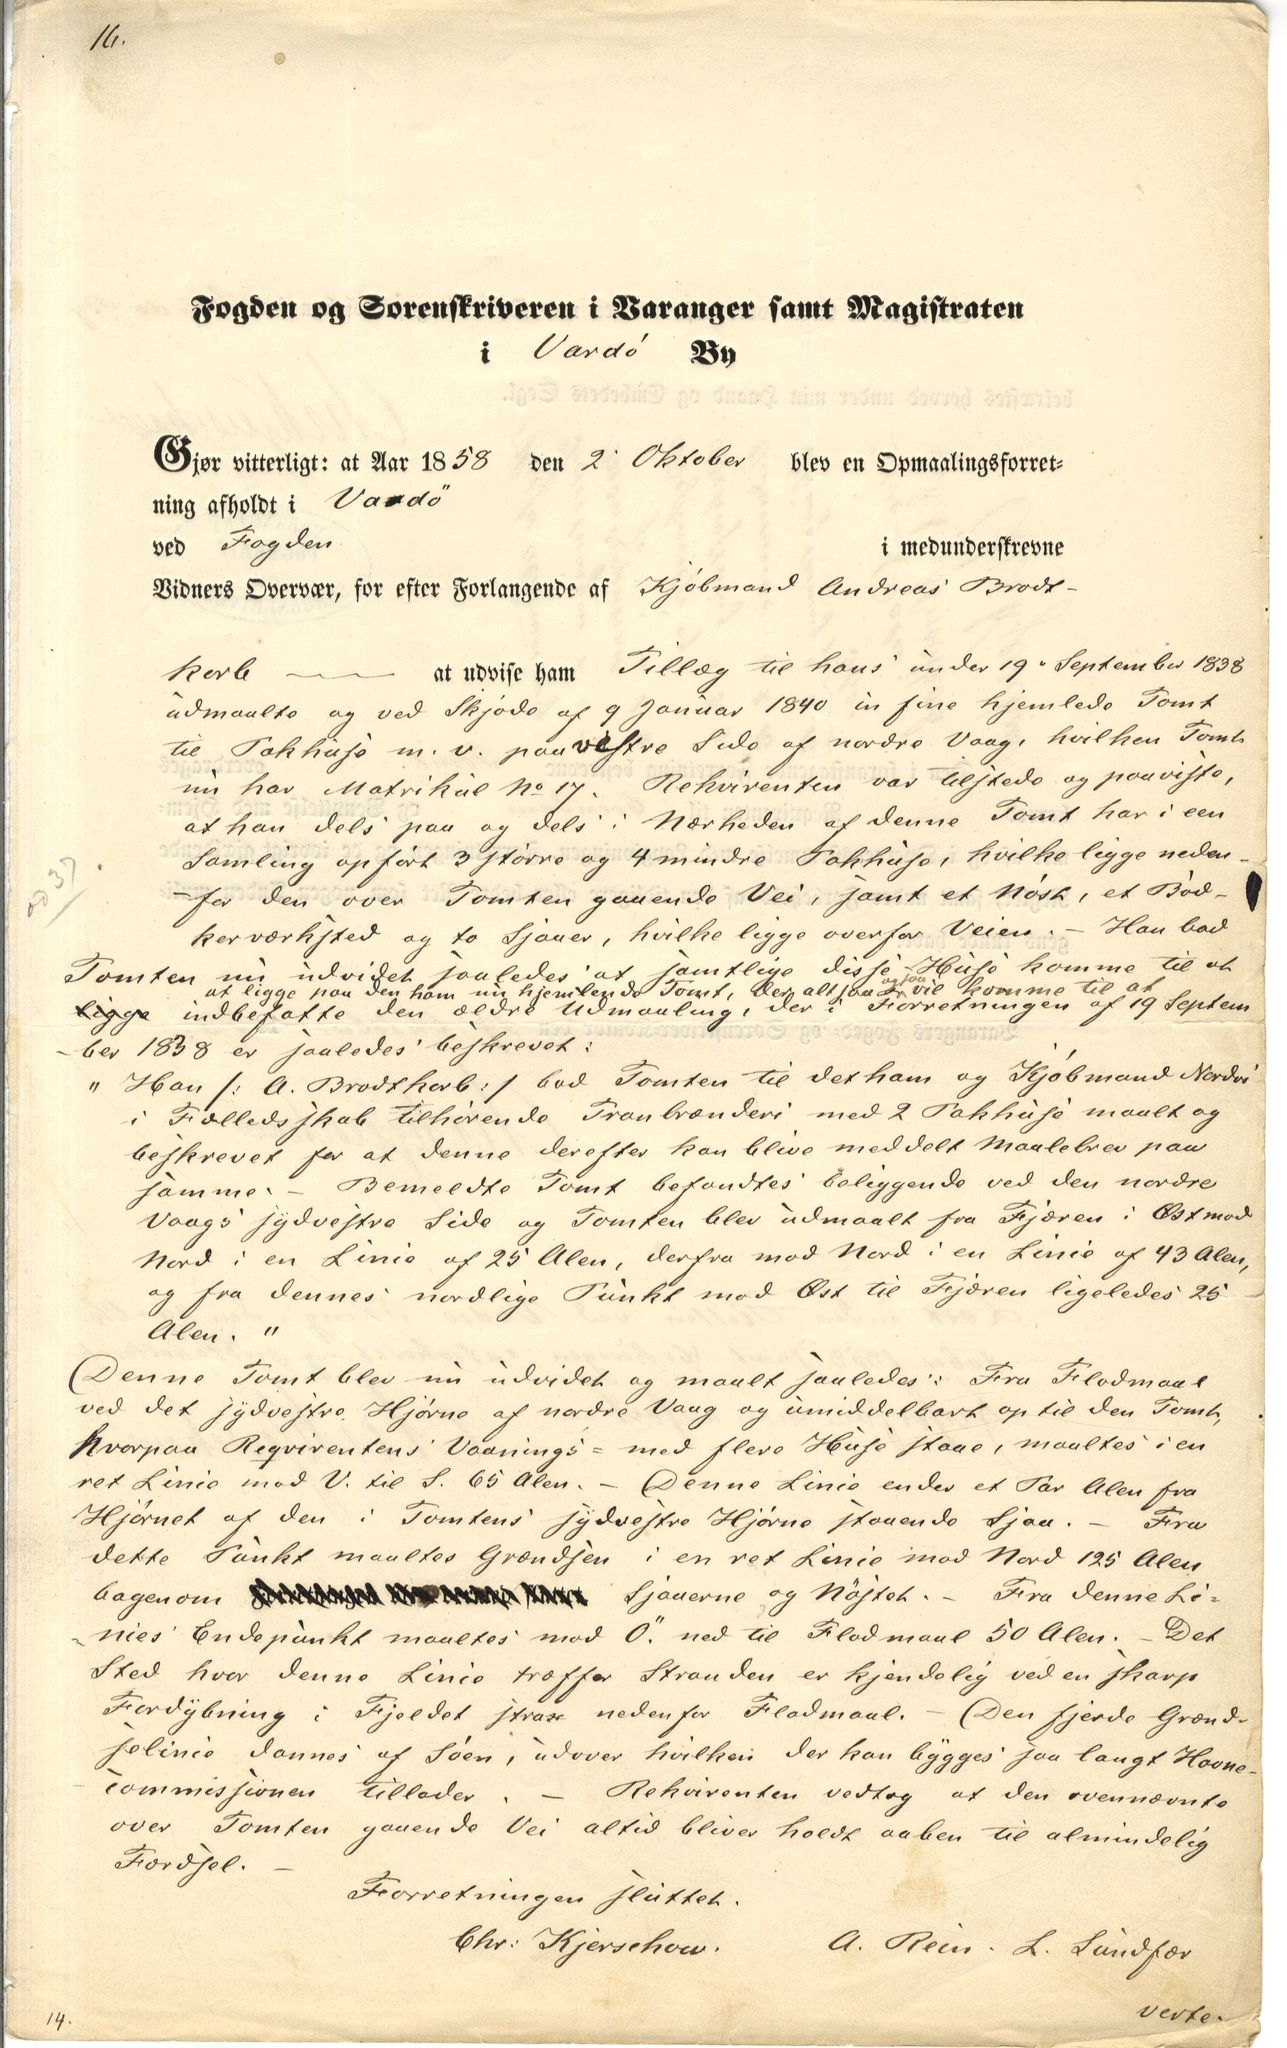 16.
Fogden og Sorenskriveren i Varanger samt Magistraten
i Vardö By
Gjør vitterligt: at Aar 1858 den 2 Oktober blev en Opmaalingsforret-
ning afholdt i Vardö
ved Fogden i medunderskrevne
Vidners Overvær, for efter Forlangende af Kjöbmand Andreas Brodt-
korb at udvise ham Tillæg til hans under 19 September 1838
udmaalte og ved Skjöde af 9 Januar 1840 in fine hjemlede Tomt
til Pakhuse m. v. paa vestre Side af nordre Vaag, hvilken Tomt
nu har Matrikul No 17. Rekvirenten var tilstede og paaviste,
at han dels paa og dels i Nærheden af denne Tomt har i een
Samling opfört 3 större og 4 mindre Pakhuse, hvilke ligge neden-
-for den over Tomten gaaende Vei, samt et Nöst, et Bød-
kerværksted og to Sjaaer, hvilke ligge overfor Veien. - Han bad
Tomten nu udvidet saaledes at samtlige disse Huse komme til at
at ligge paa den ham nu hjemlende Tomt, der altsaa vil komme til at
ligge indbefatte den ældre Udmaaling, der i Forretningen af 19 Septem
-ber 1838 er saaledes beskrevet:
" Han /: A. Brodtkorb :/ bad Tomten til det ham og Kjöbmand Nordvi
i Fælledsskab tilhörende Tranbrænderi med 2 Pakhuse maalt og
beskrevet for at denne derefter kan blive meddelt Maalebrev paa
samme. - Bemeldte Tomt befandtes beliggende ved den nordre
Vaags sydvestre Side og Tomten blev udmaalt fra Fjæren i Øst mod
Nord i en Linie af 25 Alen, derfra mod Nord i en Linie af 43 Alen,
og fra dennes nordlige Punkt mod Øst til Fjæren ligeledes 25
Alen. "
Denne Tomt blev nu udvidet og maalt saaledes: Fra Flodmaal
ved det sydvestre Hjørne af nordre Vaag og umiddelbart op til den Tomt,
hvorpaa Reqvirentens Vaanings= med flere Huse staae, maaltes i en
ret Linie mod V. til S. 65 Alen. - Denne Linie ender et Par Alen fra
Hjörnet af den i Tomtens sydvestre Hjørne staaende Sjaa. - Fra
dette Punkt maaltes Grændsen i en ret Linie mod Nord 125 Alen
bagenom Sjaaerne og Nöstet. - Fra denne Li-
-nies Endepunkt maaltes mod Ö. ned til Flodmaal 50 Alen. - Det
Sted hvor denne Linie træffer Stranden er kjendelig ved en skarp
Fordybning i Fjeldet strax nedenfor Flodmaal. - Den fjerde Grænd-
selinie dannes af Söen, udover hvilken der kan bygges saa langt Havne-
commissionen tillader. - Rekvirenten vedtog at den ovennævnte
over Tomten gaaende Vei altid bliver holdt aaben til almindelig
Færdsel. -
Forretningen sluttet.
Chr: Kjerschow. A. Rein. L. Sundfær
verte.
14.